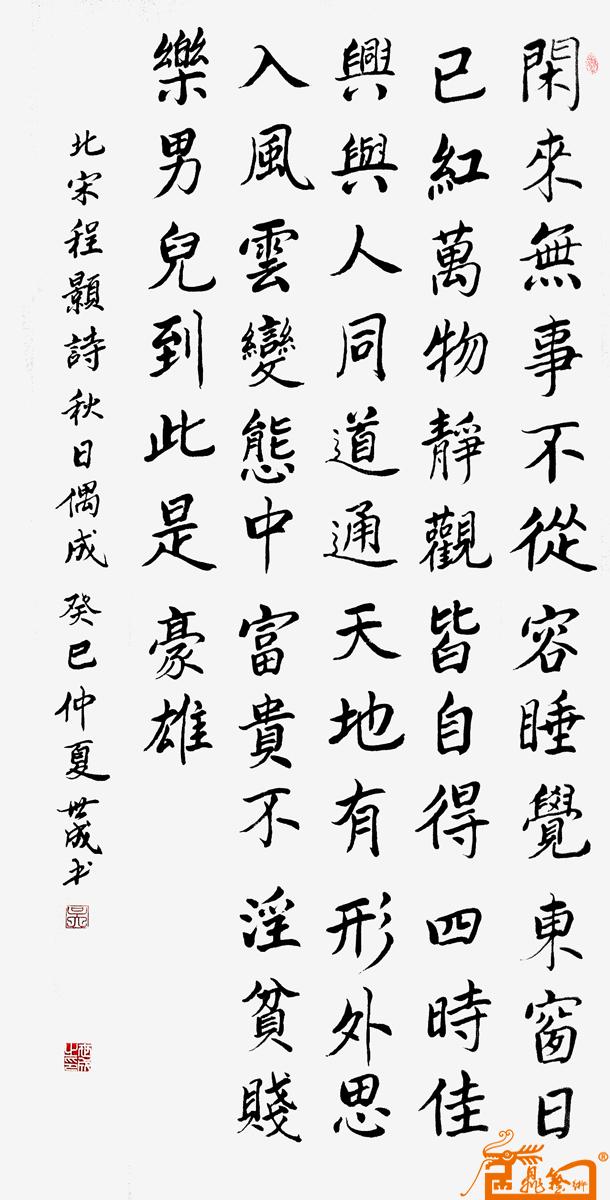 閑來無事不從容睡覺東窗日
已紅萬物靜觀皆自得四時佳
興與人同道通天地有形外思
入風雲變態中富貴不淫貧賤
樂男兒到此是豪雄
北宋程顥詩秋日偶成 癸巳仲夏 世成书